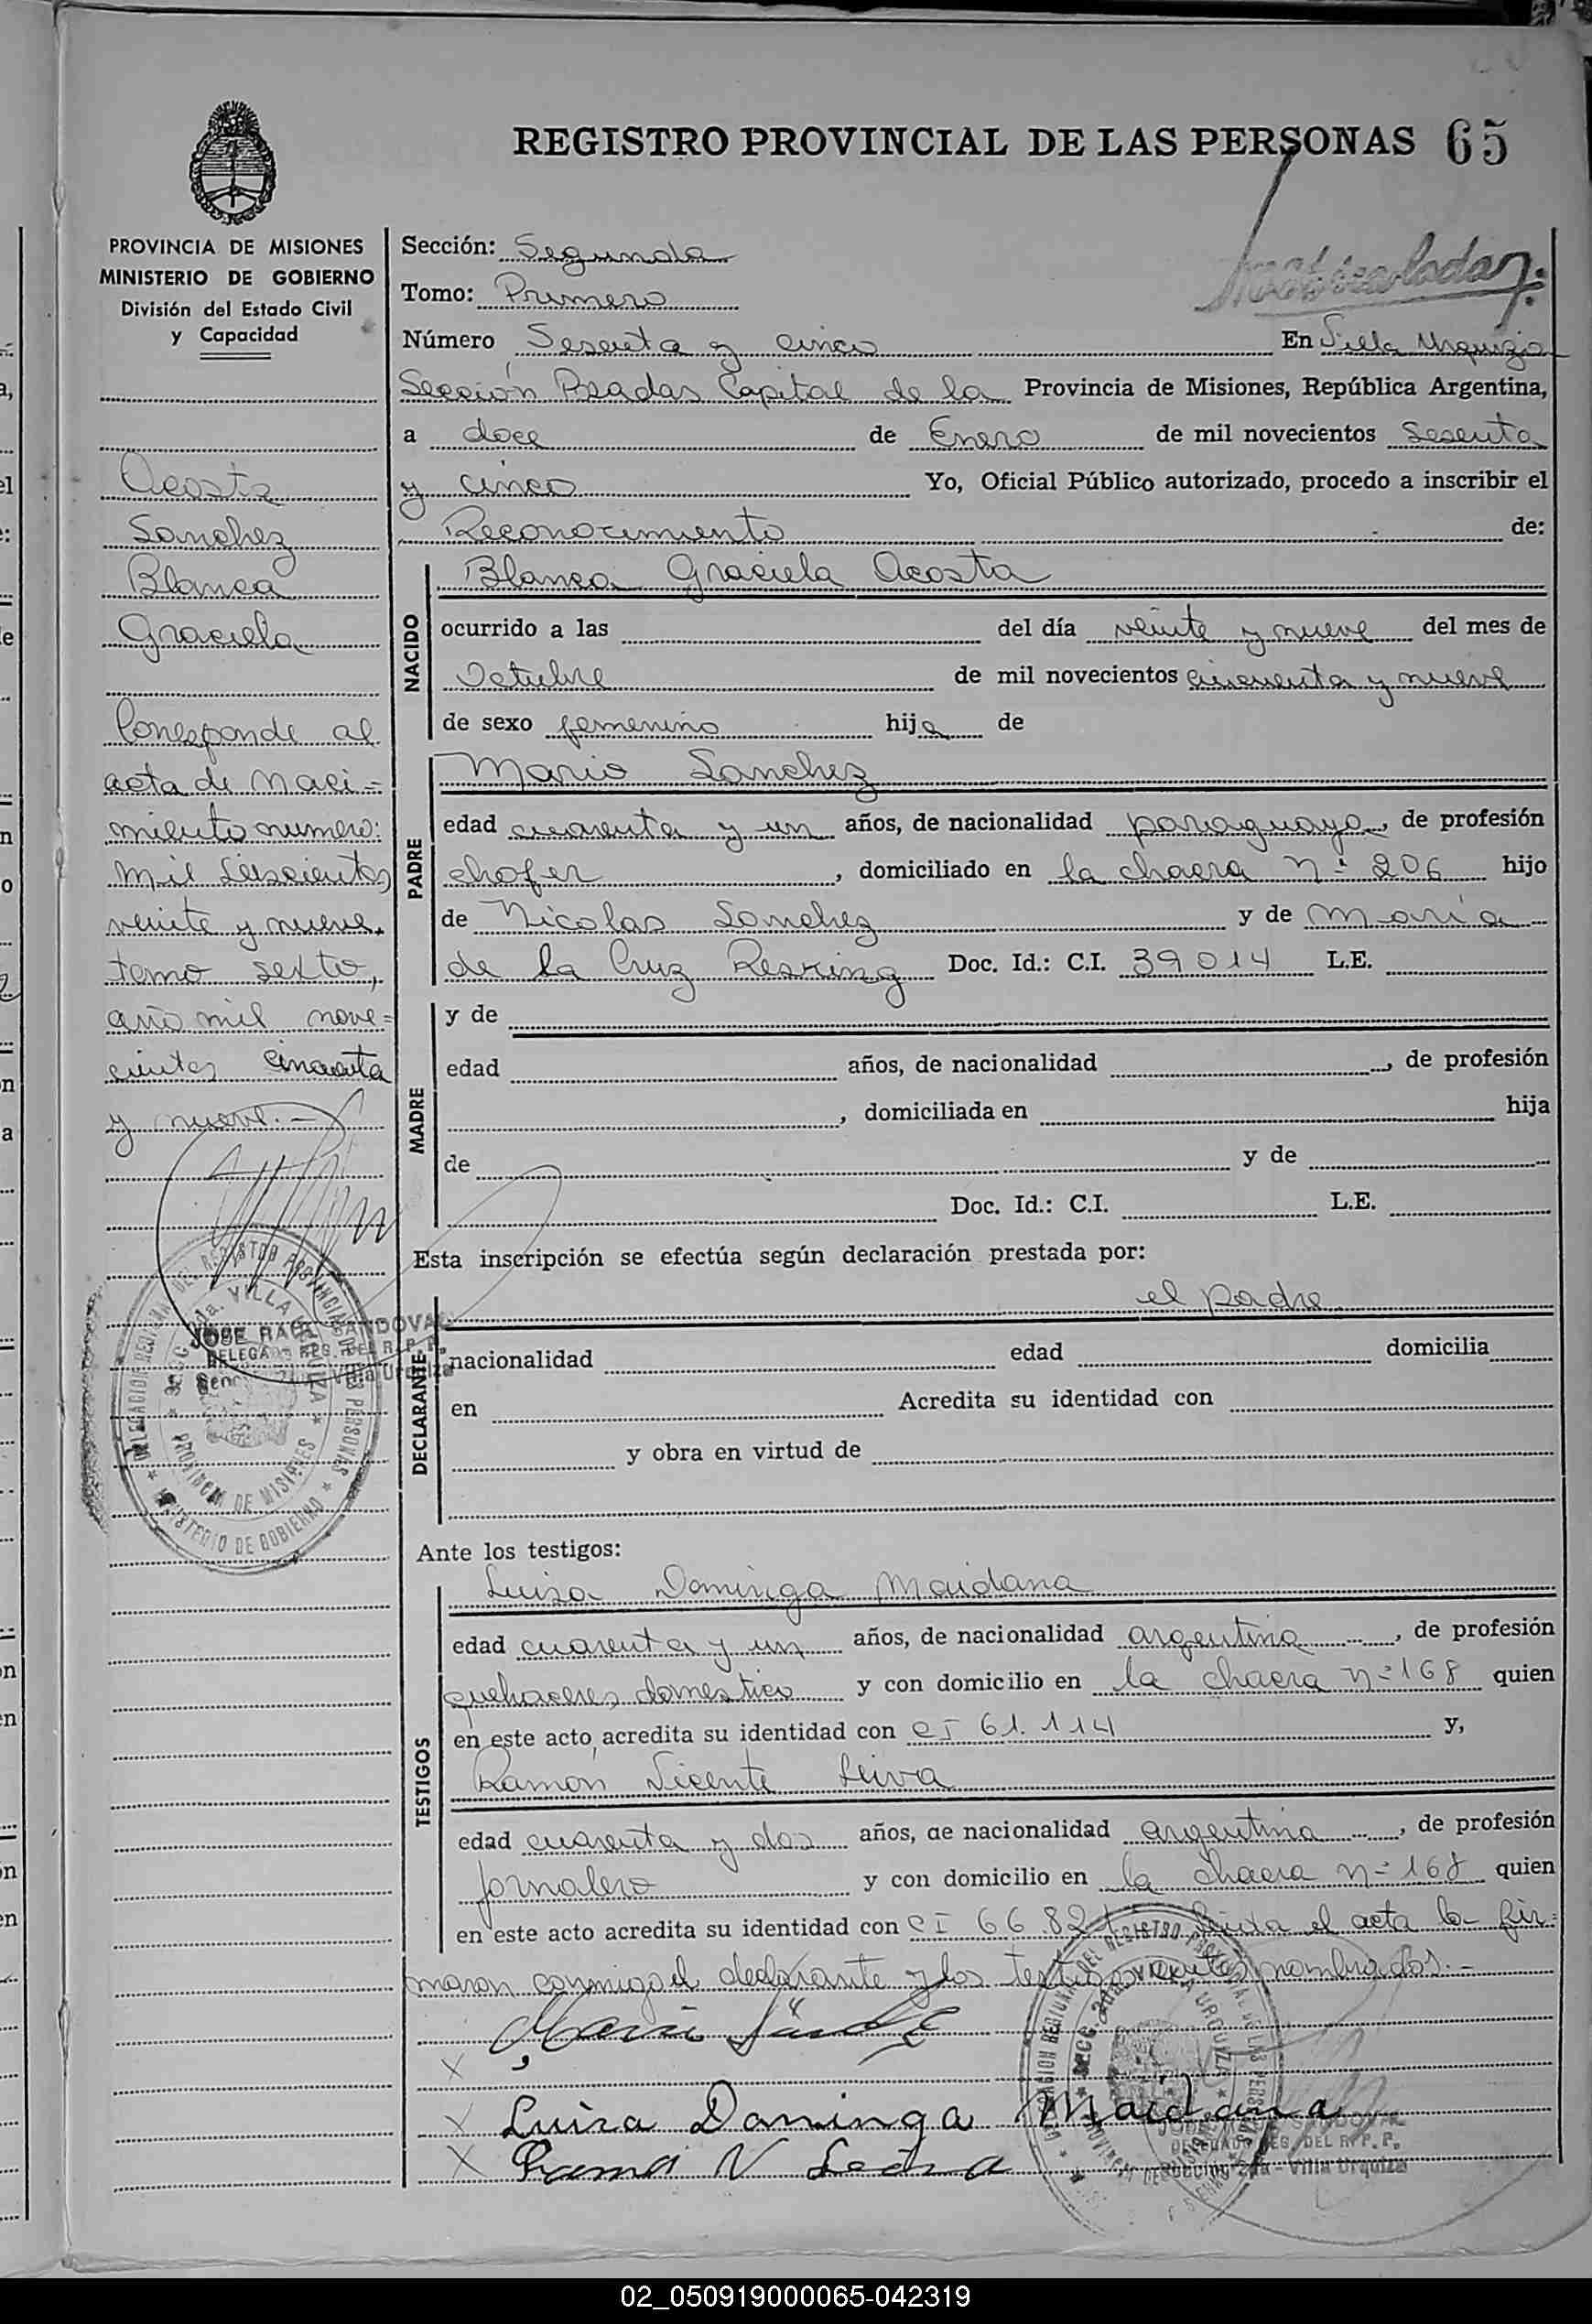 REGISTRO PROVINCIAL DE LAS PERSONAS 65
PROVINCIA DE MISIONES
MINISTERIO DE GOBIERNO
División del Estado Civil
y Capacidad
Acosta
Sanchez
Blanca
Graciela
Corresponde al
acta de Naci=
miento numero:
mil seiscientos
veinte y nueve.
tomo sexto,
año mil nove=
cientos cincuenta
y nueve.-
Sección: Segunda
Tomo: Primero
Número Sesenta y cinco En Villa Urquiza
Sección Posadas Capital de la Provincia de Misiones, República Argentina,
a doce de Enero de mil novecientos Sesenta
y cinco Yo, Oficial Público autorizado, procedo a inscribir el
Reconocimiento de:
NACIDO
Blanca Graciela Acosta
ocurrido a las del día veinte y nueve del mes de
Octubre de mil novecientos cincuenta y nueve
de sexo femenino hija de
PADRE
Mario Sanchez
edad cuarenta y un años, de nacionalidad paraguayo, de profesión
chofer, domiciliado en la chacra Nº 206 hijo
de Nicolas Sanchez y de Maria
de la Cruz Doc. Id.: C.I. 39014 L.E.
MADRE
y de
edad años, de nacionalidad , de profesión
, domiciliada en hija
de y de
Doc. Id.: C.I. L.E.
Esta inscripción se efectúa según declaración prestada por:
DECLARANTE
el padre
nacionalidad edad domicilia
en Acredita su identidad con
y obra en virtud de
JOSE RAUL SANDOVAL
DELEGADO REG. DEL R. P. P.
Villa Urquiza
DELEGACION REGIONAL DEL REGISTRO PROVINCIAL DE LAS PERSONAS
MINISTERIO DE GOBIERNO
Secc 2da. VILLA URQUIZA
PROVINCIA DE MISIONES
Ante los testigos:
TESTIGOS
Luisa Dominga Maidana
edad cuarenta y un años, de nacionalidad argentina, de profesión
quehaceres domestico y con domicilio en la chacra nº 168 quien
en este acto acredita su identidad con CI 61.114 y,
Ramon Vicente Leiva
edad cuarenta y dos años, de nacionalidad argentina, de profesión
jornalero y con domicilio en la chacra nº 168 quien
en este acto acredita su identidad con CI 66.82 el acta la fir=
maron conmigo el declarante y los testigos antes nombrados.-
Mario
X
X Luisa Dominga Maidana
X
DELEGADO REG. DEL R. P. P.
Sección 2da - Villa Urquiza
02_050919000065-042319